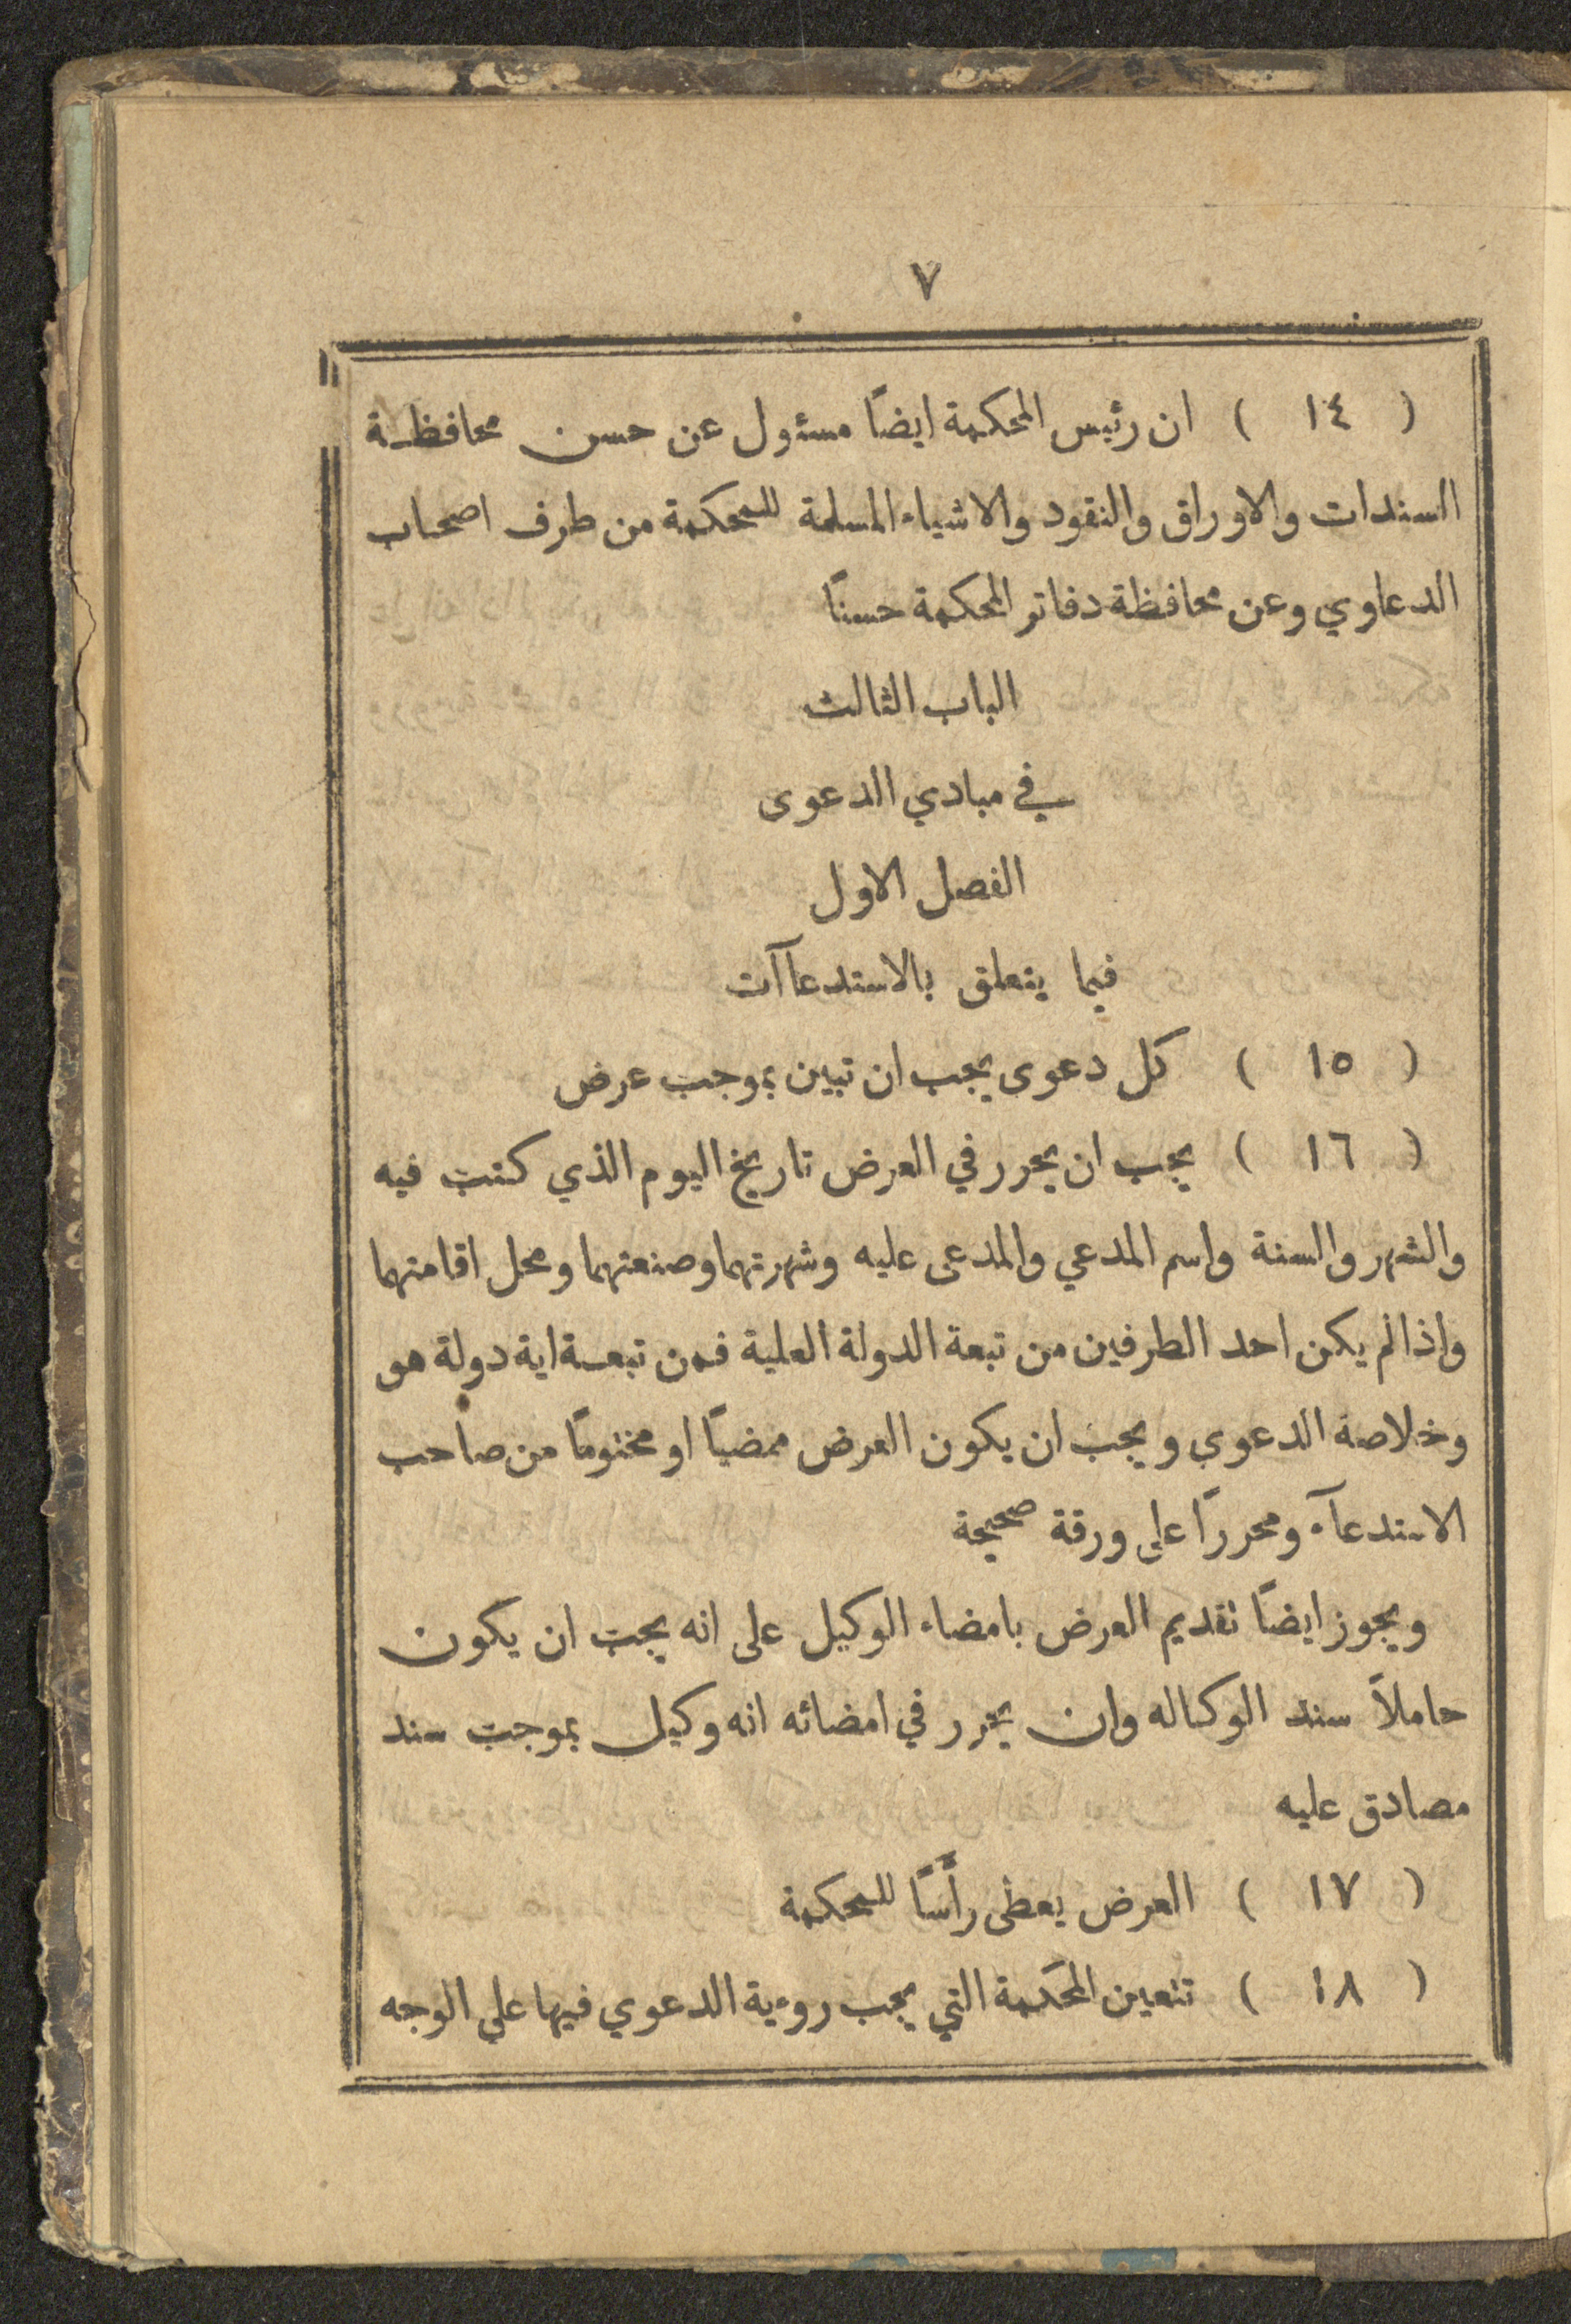 ٧
( ١٤ ) ان رئيس المحكمة ايضاً مسئول عن حسن محافظة
السندات والاوراق والنقود والاشياء المسلمة للمحكمة من طرف اصحاب
الدعاوي وعن محافظة دفاتر المحكمة حسناً
الباب الثالث
في مبادي الدعوى
الفصل الاول
فيما يتعلق بالاستدعاآت
( ١٥ ) كل دعوى يجب ان تبين بموجب عرض
( ١٦ ) يجب ان يحرر في العرض تاريخ اليوم الذي كتب فيه
والشهر والسنة واسم المدعي والمدعى عليه وشهرتهما وصنعتهما ومحل اقامتهما
واذا لم يكن احد الطرفين من تبعة الدولة العلية فمن تبعة اية دولة هو
وخلاصة الدعوى ويجب ان يكون العرض ممضياً او مختوماً من صاحب
الاستدعآء ومحرراً على ورقة صحيحة
ويجوز ايضاً تقديم العرض بامضاء الوكيل على انه يجب ان يكون
حاملاً سند الوكاله وان يحرر في امضائه انه وكيل بموجب سند
مصادق عليه
( ١٧ ) العرض يعطى رأساً للمحكمة
( ١٨ ) تتعين المحكمة التي يجب روءية الدعوي فيها علي الوجه